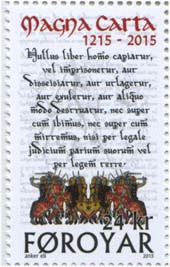 Magna Carta
1215 - 2015
Nullus liber homo capiatur,
vel imprisonetur, aut
disseisiatur, aut utlagetur,
aut exuletur, aut aliquo
modo destruatur, nec super
eum ibimus, nec super eum
mittemus, nisi per legale
judicium parium suorum vel
per legem terre
24 kr
FØROYAR
anker eli
2015